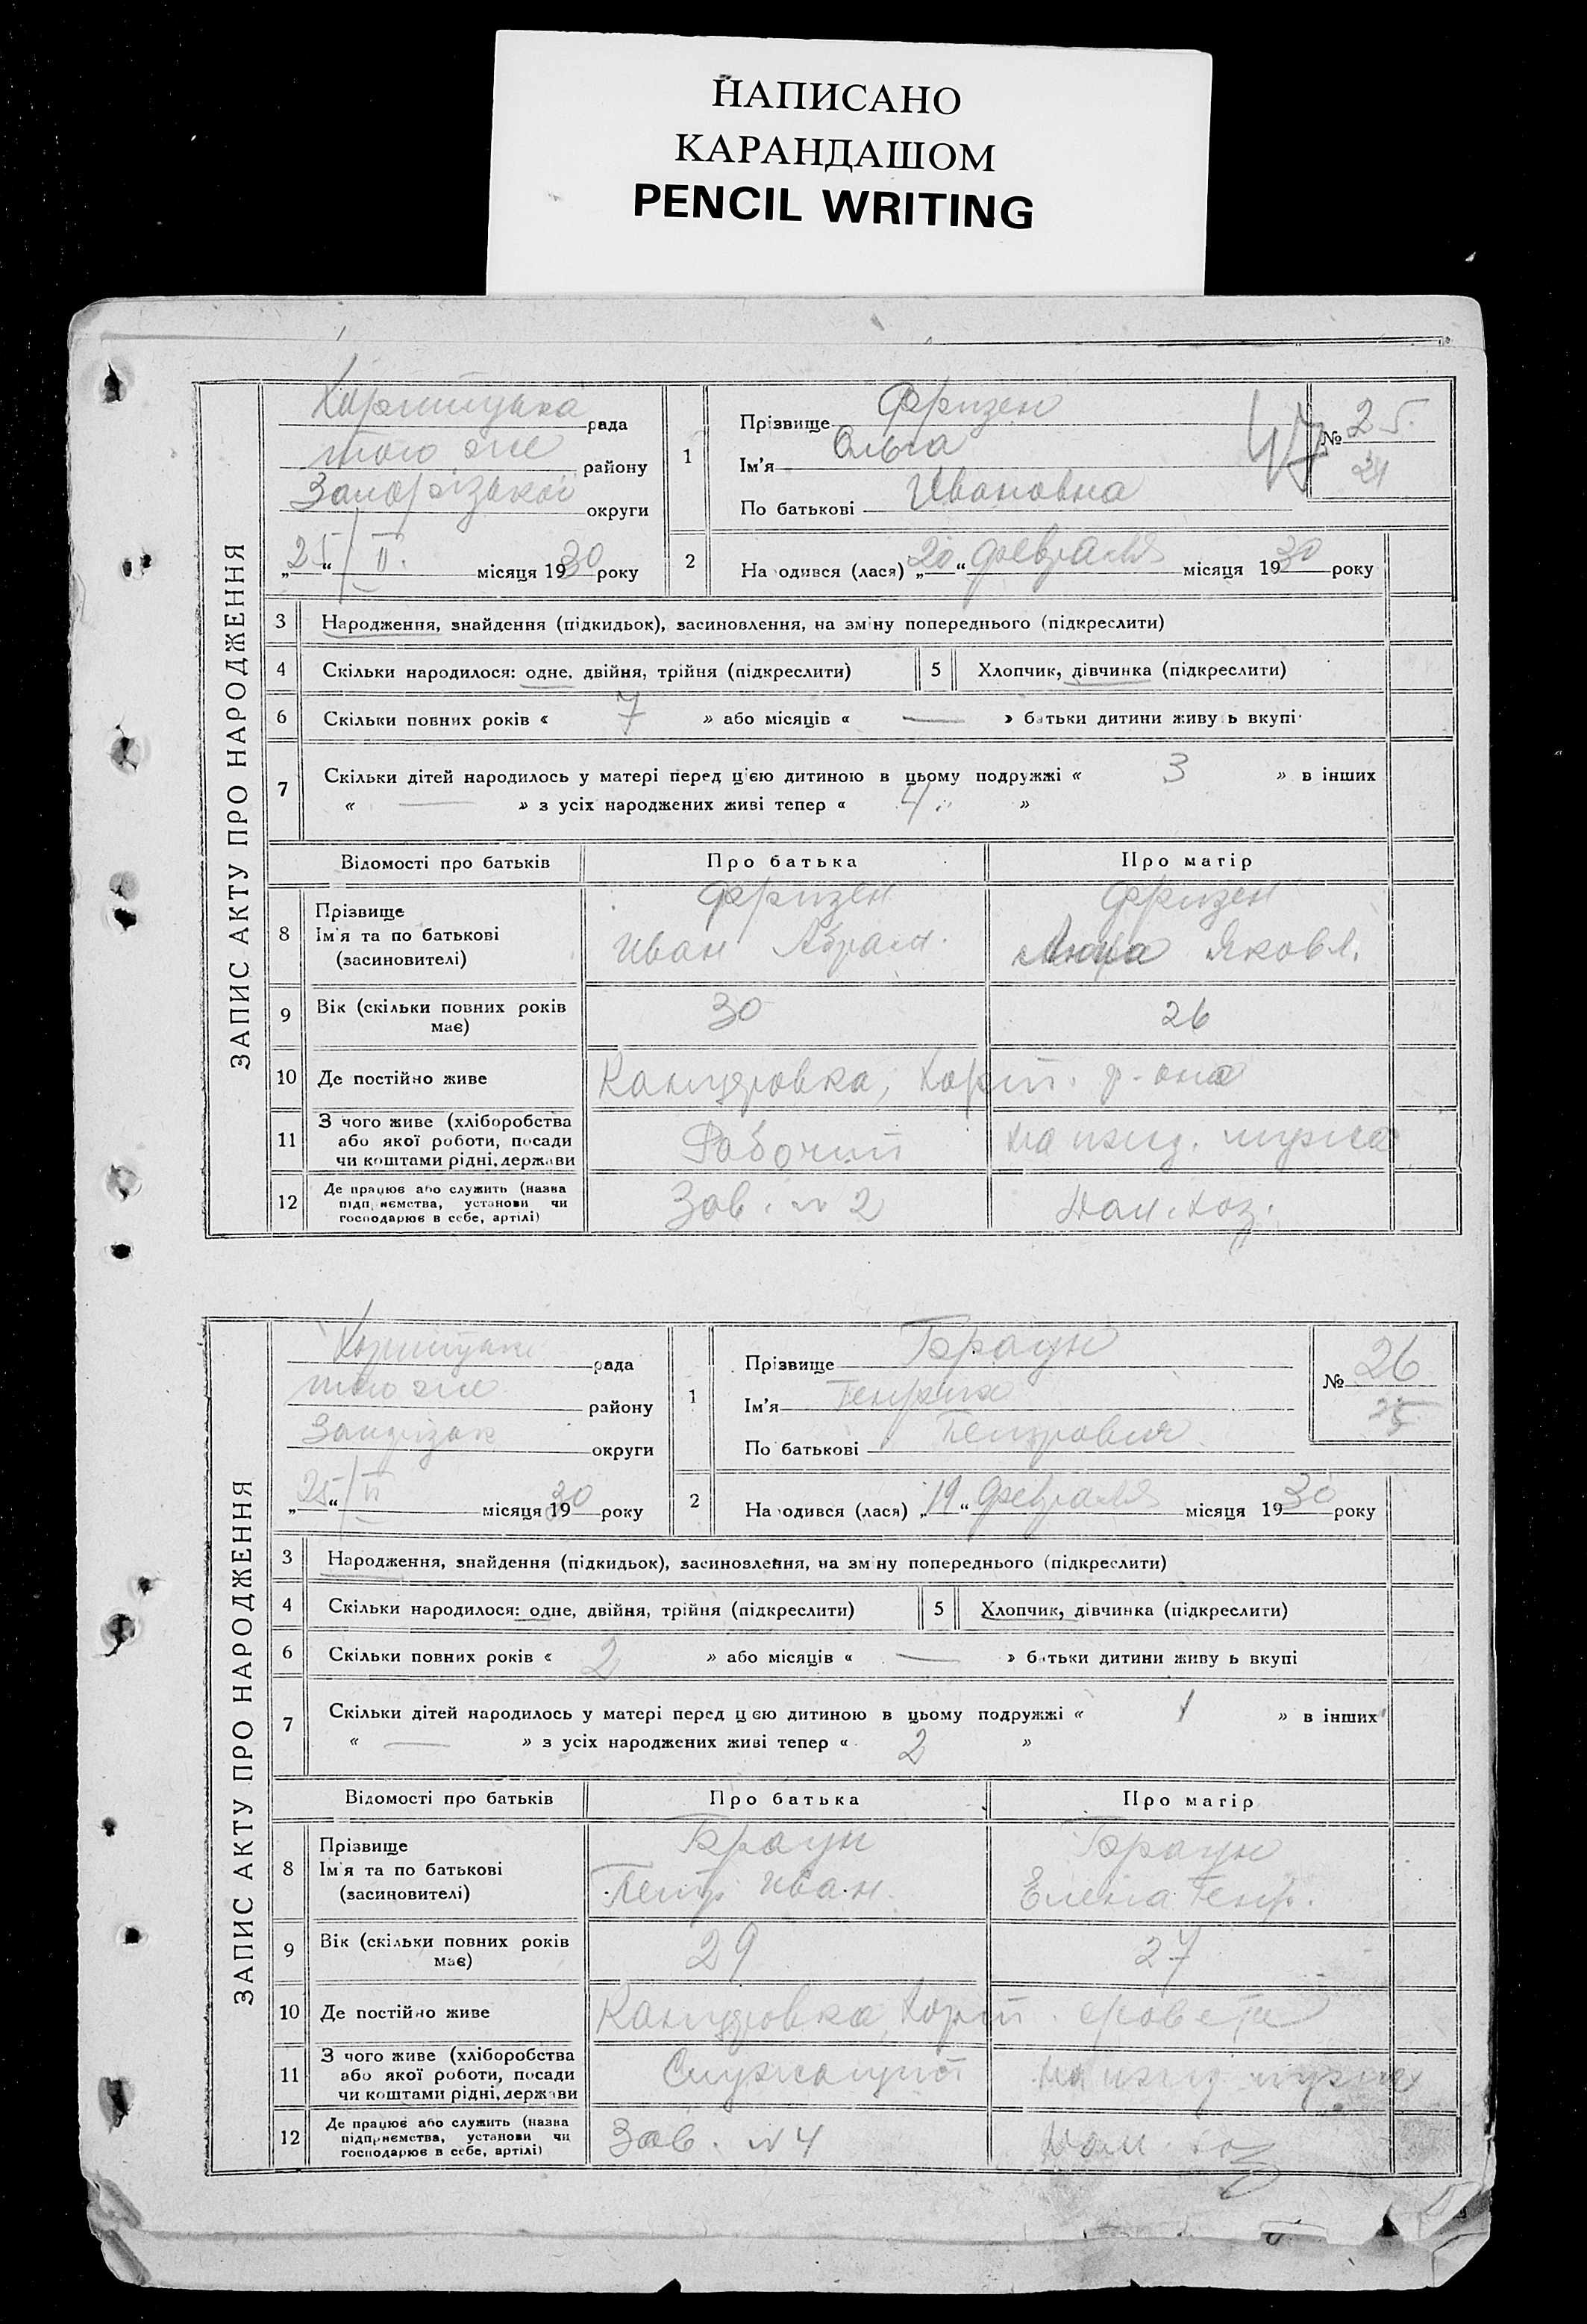 НАПИСАНО
КАРАНДАШОМ
PENCIL WRITING
ЗАПИС АКТУ ПРО НАРОДЖЕННЯ
Хортицька рада
того же району
Запорізької округи
„25“ / II. місяця 1930 року
1
Прізвище Фризен
Ім'я Ольга
По батькові Ивановна
№ 25.
24
47
2
На одився (лася) „20“ февраля місяця 1930 року
3 Народження, знайдення (підкидьок), засиновлення, на зміну попереднього (підкреслити)
4 Скільки народилося: одне, двійня, трійня (підкреслити) 5 Хлопчик, дівчинка (підкреслити)
6 Скільки повних років « 7 » або місяців « — » батьки дитини живуть вкупі
7 Скільки дітей народилось у матері перед цією дитиною в цьому подружжі « 3 » в інших
« — » з усіх народжених живі тепер « 4 »
Відомості про батьків Про батька Про матір
8 Прізвище Ім'я та по батькові (засиновителі)
Фризен Фризен
Иван Абрам. Анна Яковл.
9 Вік (скільки повних років має) 30 26
10 Де постійно живе Канцеровка, Хорт. р-она
11 З чого живе (хліборобства або якої роботи, посади чи коштами рідні, держави Рабочий на ижд. мужа
12 Де працює або служить (назва підприємства, установи чи господарює в себе, артілі) Зав. № 2 Дом. хоз.
ЗАПИС АКТУ ПРО НАРОДЖЕННЯ
Хортицьк рада
того же району
Запорізьк округи
„25“ / II місяця 1930 року
1
Прізвище Браун
Ім'я Генрих
По батькові Петрович
№ 26
25
2
На одився (лася) „19“ февраля місяця 1930 року
3 Народження, знайдення (підкидьок), засиновлення, на зміну попереднього (підкреслити)
4 Скільки народилося: одне, двійня, трійня (підкреслити) 5 Хлопчик, дівчинка (підкреслити)
6 Скільки повних років « 2 » або місяців « — » батьки дитини живу ь вкупі
7 Скільки дітей народилось у матері перед цією дитиною в цьому подружжі « 1 » в інших
« — » з усіх народжених живі тепер « 2 »
Відомості про батьків Про батька Про матір
8 Прізвище Ім'я та по батькові (засиновителі)
Браун Браун
Петр Иван. Елена Генр.
9 Вік (скільки повних років має) 29 27
10 Де постійно живе Канцеровка, Хорт.
11 З чого живе (хліборобства або якої роботи, посади чи коштами рідні, держави Служащий на ижд мужа
12 Де працює або служить (назва підприємства, установи чи господарює в себе, артілі) Зав. № 4 Дом хоз